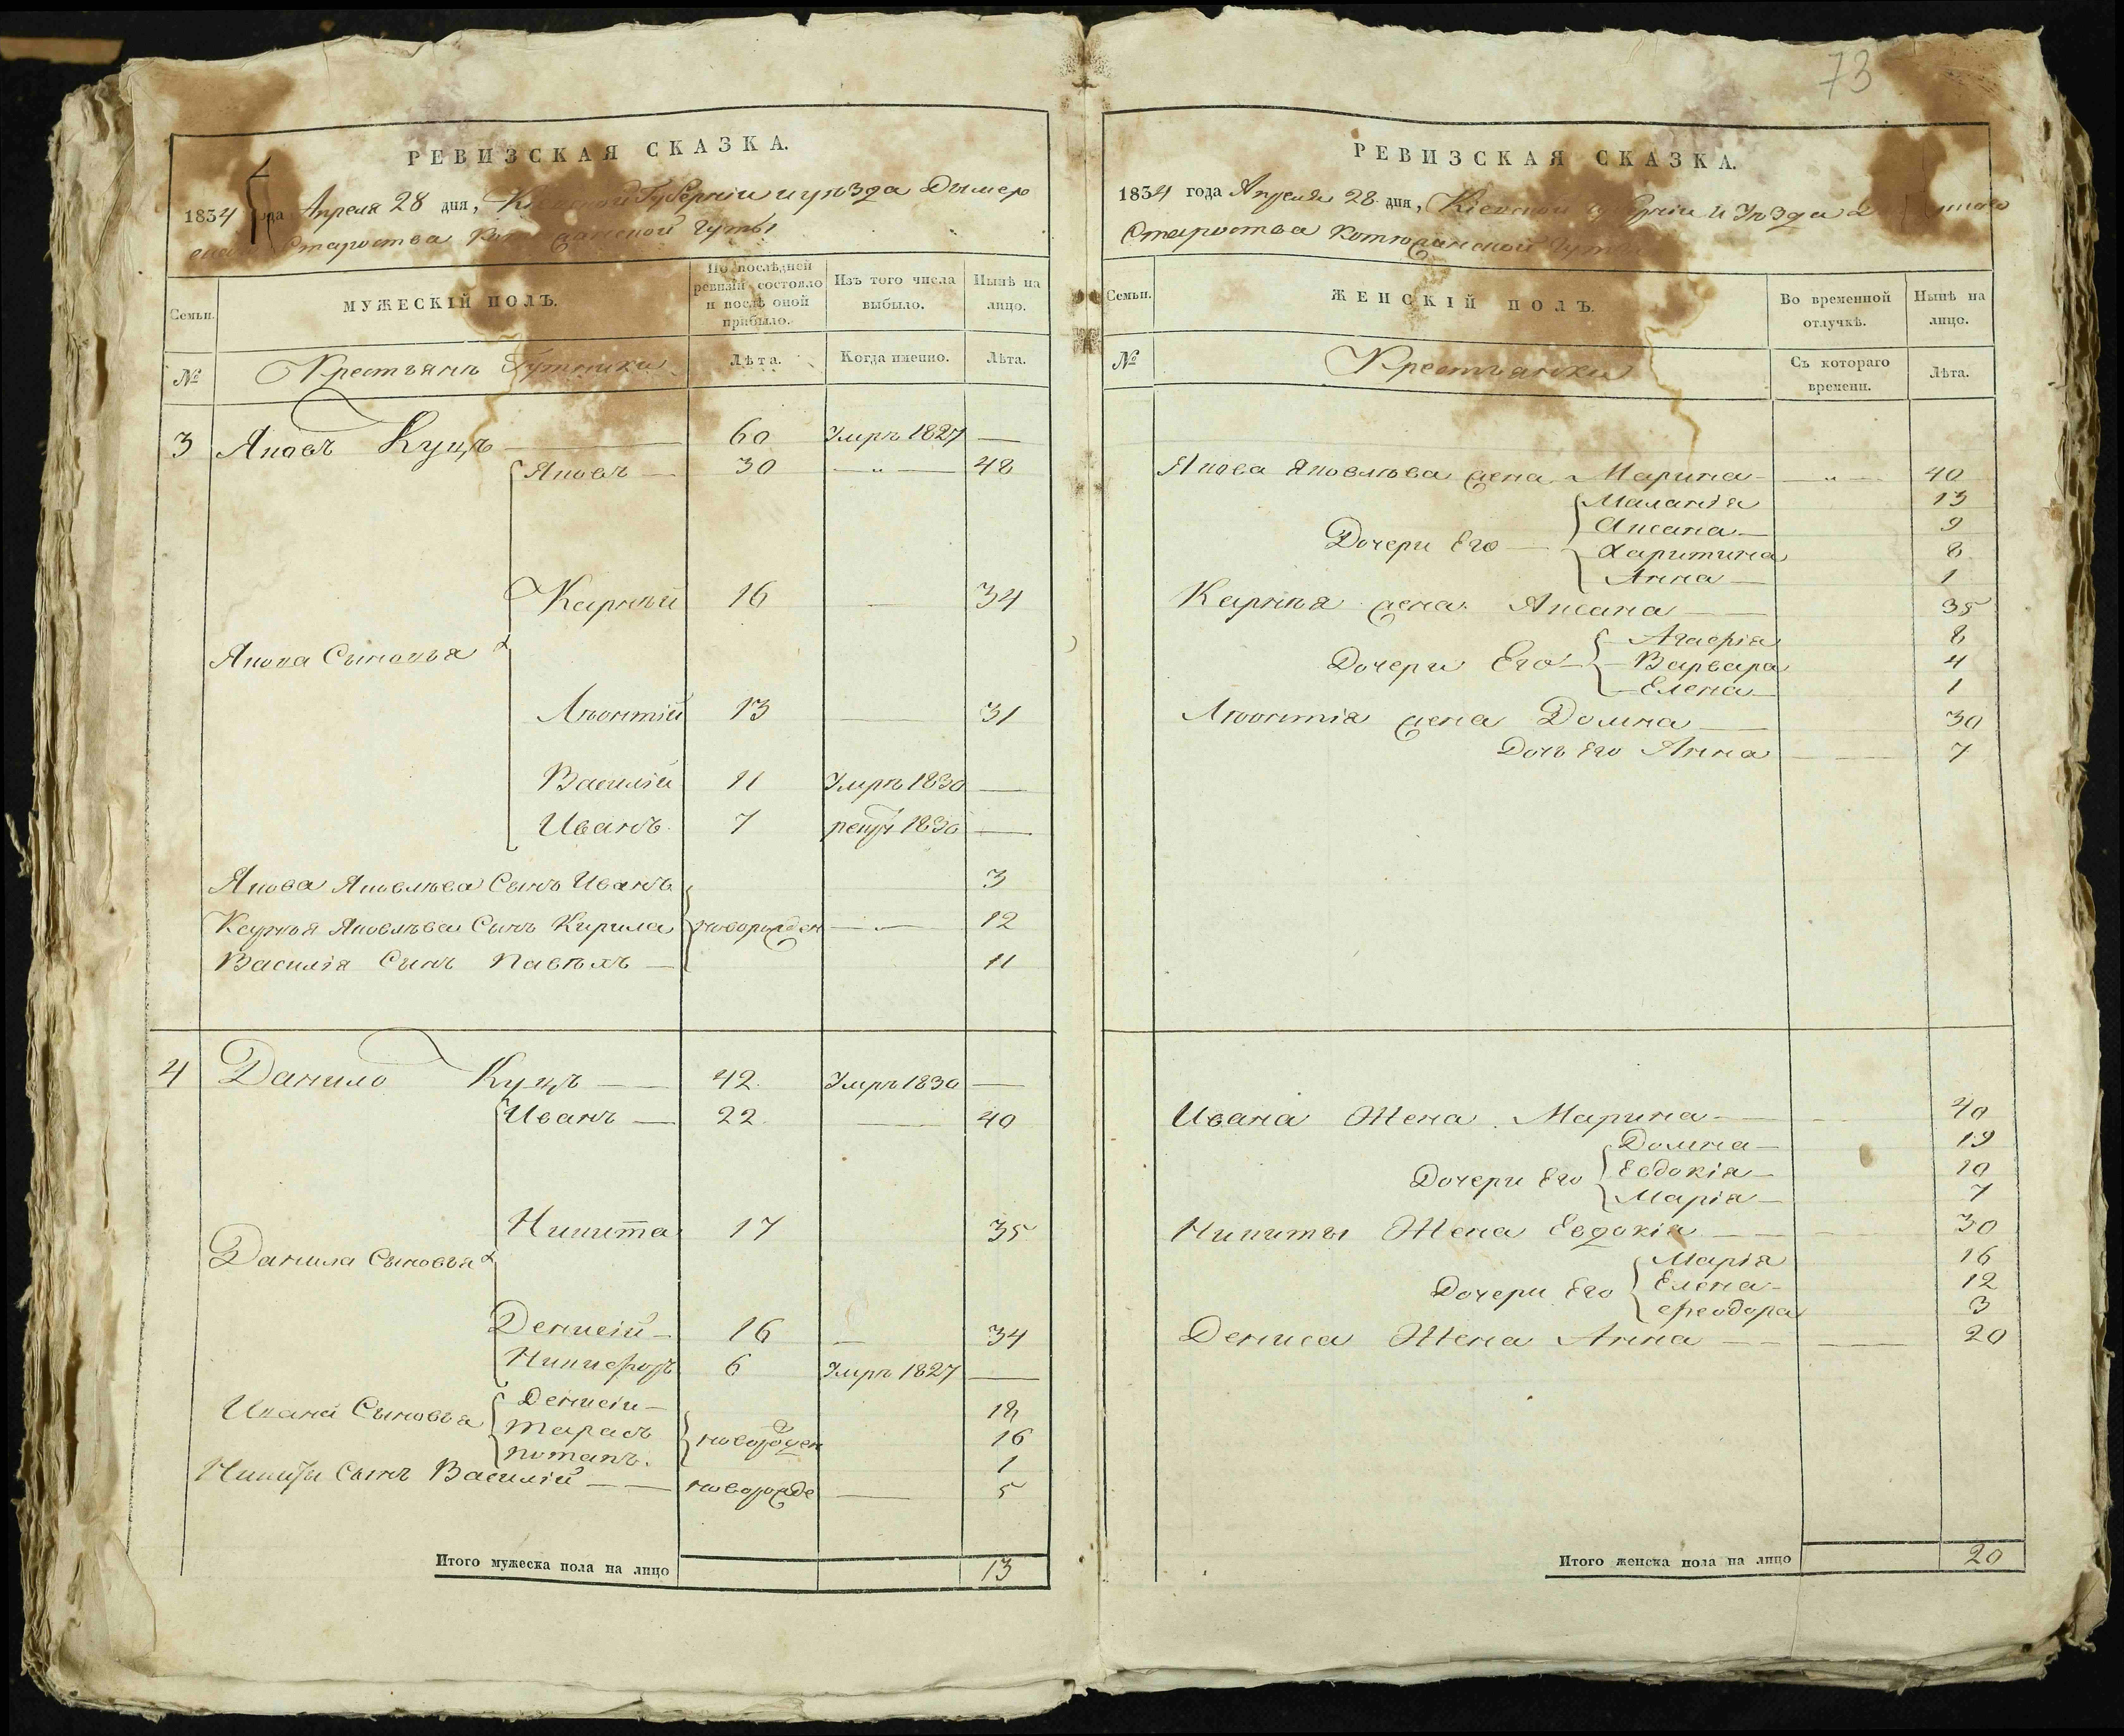 73
РЕВИЗСКАЯ СКАЗКА.
1834 года Апреля 28 дня, Кіевской Губерніи и уѣзда Дымер
ской Староства Гуты
Семьи.
МУЖЕСКІЙ ПОЛЪ.
По послѣдней ревизіи состояло и послѣ оной прибыло.
Изъ того числа выбыло.
Нынѣ на лицо.
№
Крестьянѣ Гутники
Лѣта.
Когда именно.
Лѣта.
3 Яковъ Куцъ — 60 Умрѣ 1827 —
Яковъ — 30 — „ — 48
Карнѣй 16 — 34
Якова Сыновья
Лѣонтій 13 — 31
Василій 11 Умрѣ 1830 —
Иванъ 7 рекрут 1830 —
Якова Яковлѣва Сынъ Иванъ 3
Карнѣя Яковлѣва Сынъ Кирила новорожден — „ — 12
Василія Сынъ Павѣлъ — 11
4 Данило Куцъ — 42. Умрѣ 1830 —
Иванъ — 22. — 40
Никита 17 35
Данила Сыновья
Денисій — 16 — 34
Никифоръ 6 Умрѣ 1827 —
Ивана Сыновья Денисій — 18
Тарасъ новорожден 16
Потапъ. 1
Никиты Сынъ Василій — новорожде — 5
Итого мужеска пола на лицо 13
РЕВИЗСКАЯ СКАЗКА.
1834 года Апреля 28 дня, Кіевской Губерніи и Уѣзда
Староства Гуты
Семьи.
ЖЕНСКІЙ ПОЛЪ.
Во временной отлучкѣ.
Нынѣ на лицо.
№
Крестьянки
Съ котораго времени.
Лѣта.
Якова Яковлѣва жена Марина — „ — 40
Маланія 13
Аксана — 9
Дочери Его —
Харитина 8
Анна — 1
Карнѣя жена Аксана — 35
Агафія 8
Дочери Его — Варвара 4
Елена — 1
Лѣонтія жена Домна — 30
Дочь Его Анна — 7
Ивана Жена Марина — 40
Домна — 19
Дочери Его Евдокія — 10
Марія — 7
Никиты Жена Евдокія — 30
Марія 16
Дочери Его Елена — 12
Феодора 3
Дениса Жена Анна — 20
Итого женска пола на лицо 20